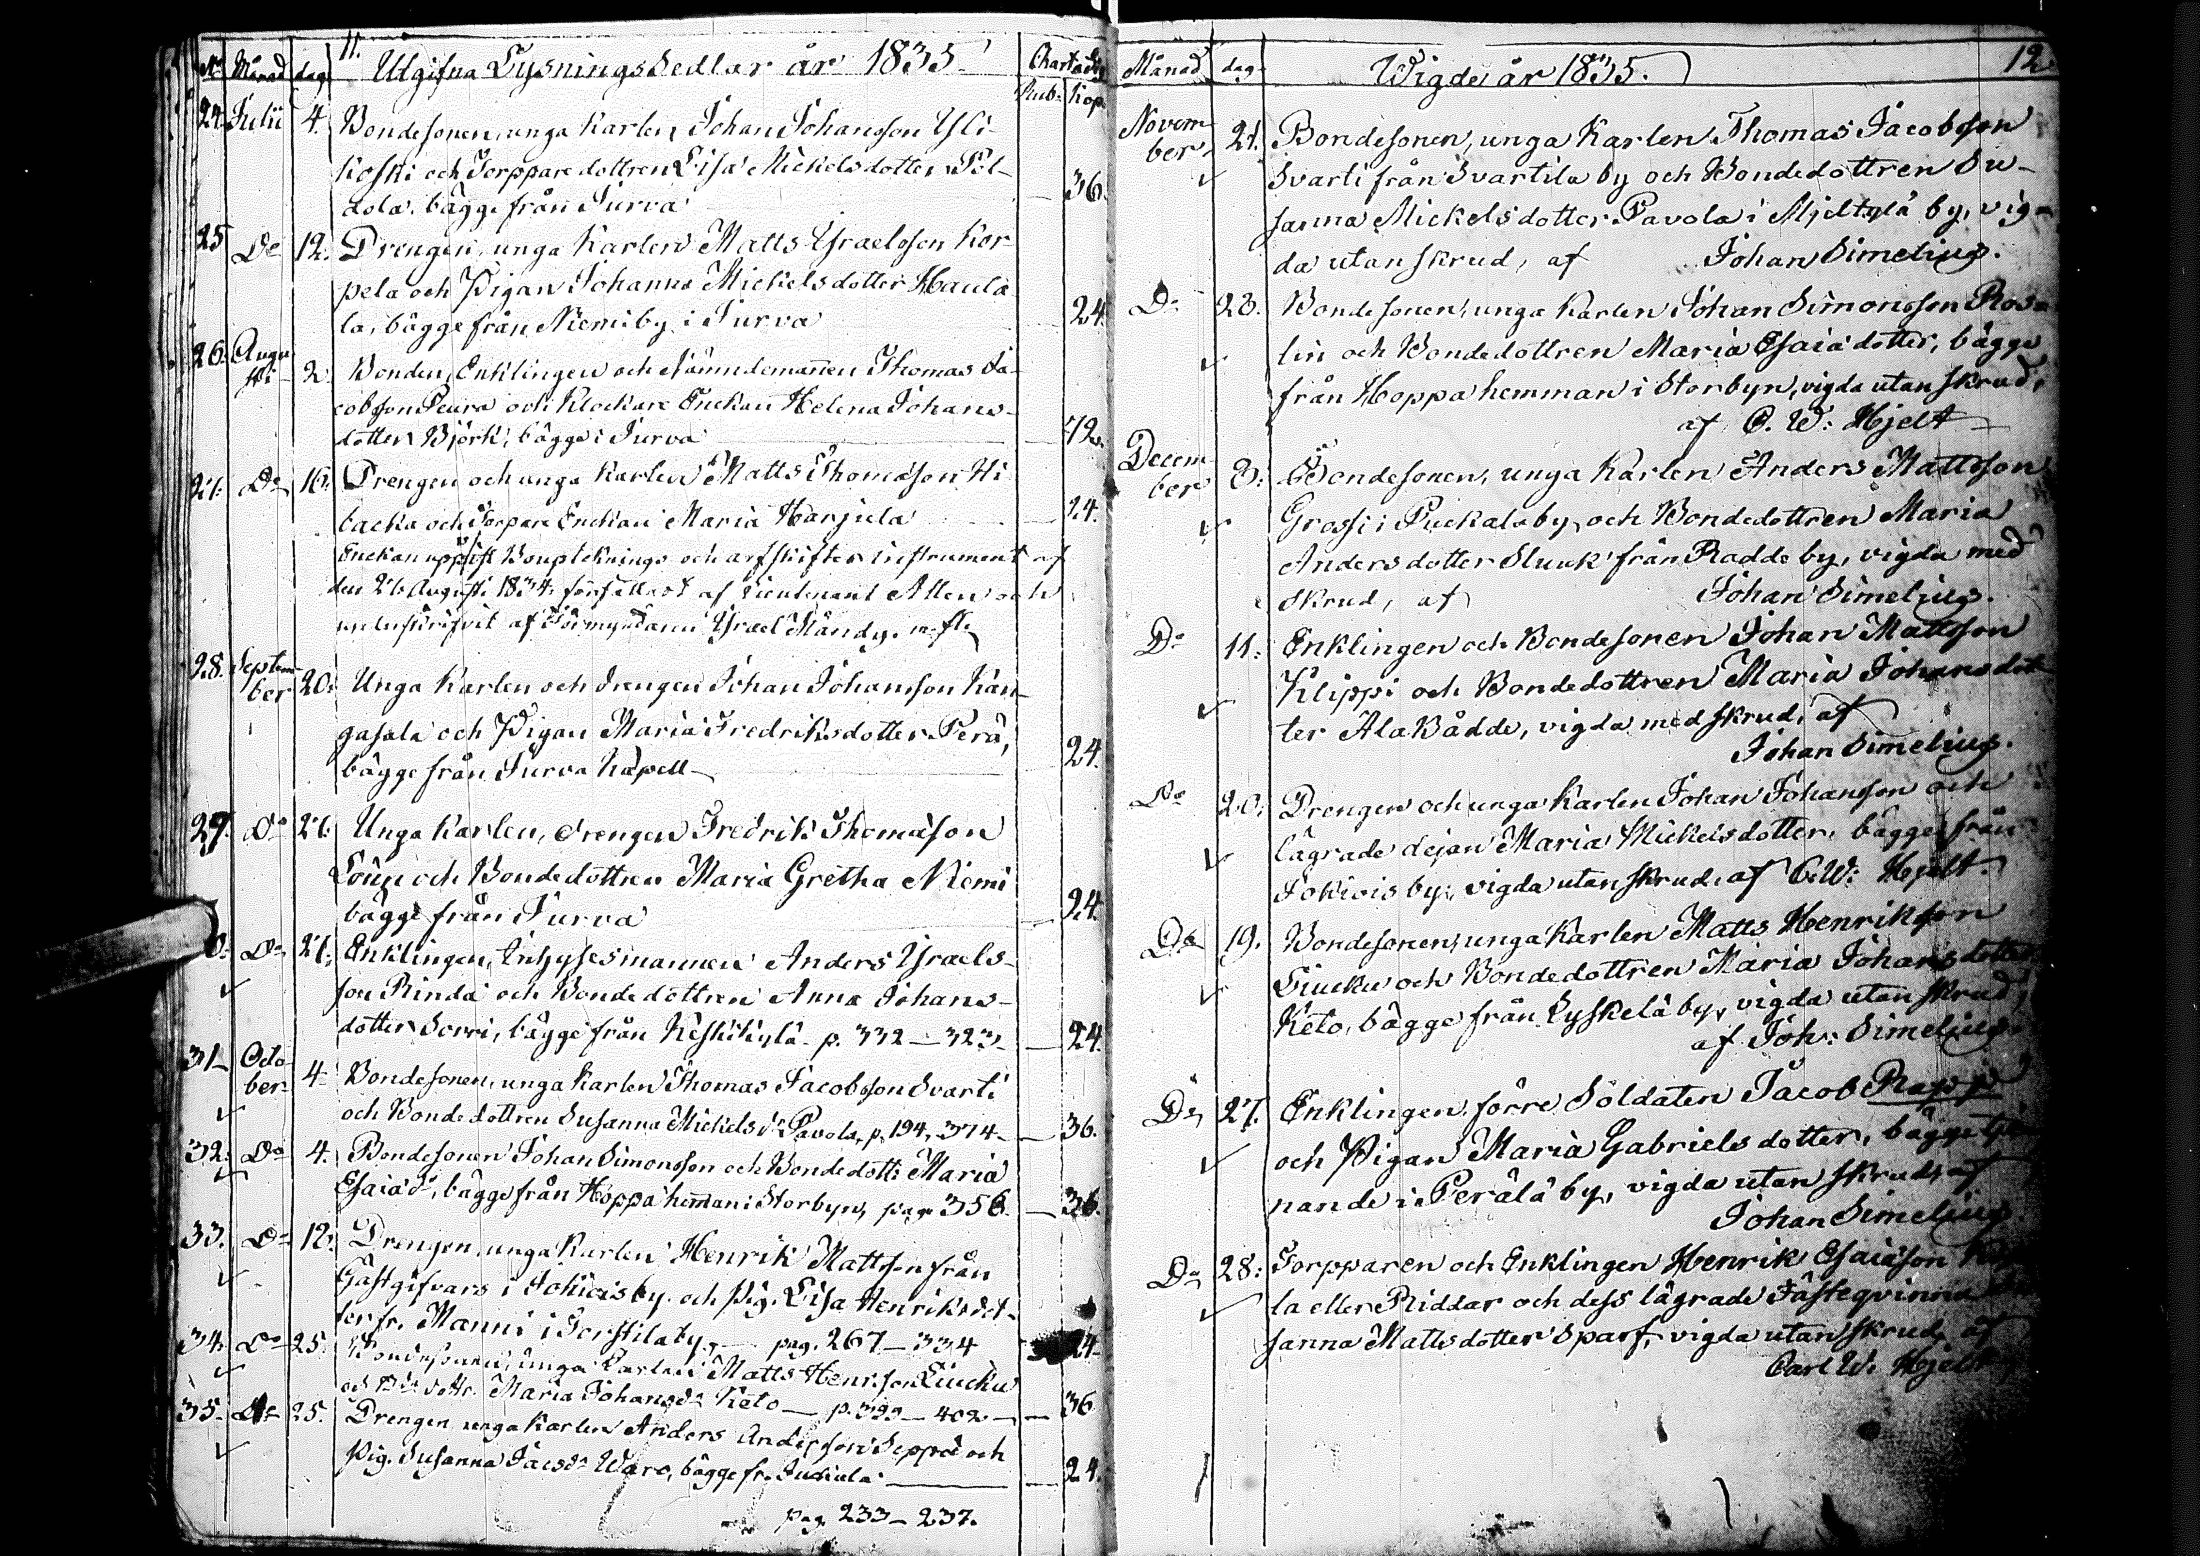 11.
No Månad dag Utgifna Lysnings Sedlar år 1835 Charta Sig
Rub. Kop.
24. Julii 4. Bondesonen, unga Karlen Johan Johansson Yli-
koski och Torpparedottren Lisa Mickelsdotter
dola, bägge från Jurva 36.
25 Do 12. Drengen, unga Karlen Matts Israelsson Kor-
pela och Pigan Johanna Mickelsdotter Haula-
la, bägge från Niemi by i Jurva 24.
26. Augu-
sti 2. Bonden, Enklingen och Nämndemannen Thomas Ja-
cobsson Peura och Klockare Enckan Helena Johans-
dotter Björk, bägge i Jurva 72.
27. Do 16. Drengen och unga Karlen Matts Thomasson
backa och Torpare Enckan Maria Harjula 24.
Enckan uppvist Bouptecknings och arfskiftes instrument af
den 26 Augusti 1834, författadt af Lieutenant Allen och
underskrifvit af Förmyndaren Israel Mändy. m. fl.
28. Septem-
ber 20. Unga Karlen och drengen Johan Johansson Kan-
gasala och Pigan Maria Fredriksdotter Perä,
bägge från Jurva Kapell 24.
29. Do 27. Unga Karlen, drengen Fredrik Thomasson
och Bondedottren Maria Gretha Niemi
bägge från Jurva 24.
0. Do 27. Enklingen, Inhysesmannen Anders Israels-
son Rinda och Bondedottren Anna Johans-
dotter Sorri, bägge från Keskikylä p. 332 — 323. 24.
31 Octo-
ber 4. Bondesonen, unga Karlen Thomas Jacobsson Svarti
och Bondedottren Susanna Mickelsdr Pavola, p. 194, 374 36.
32. Do 4. Bondesonen Johan Simonsson och Bondedottr Maria
Esaiædr, bägge från Hoppa heman i Storbyn, pag. 356. 36.
33. Do 12. Drengen, unga Karlen Henrik Mattsson från
Gästgifvars i Jokivis by och Pig. Lisa Henriksdot-
ter fr. Manni i Torstila by, — pag. 267 — 334 24
34. Do 25. Bondesonen, unga Karlen Matts Henr.son Liucku
och Bde dottr. Maria Johansdr Keto — p. 393 — 402 — 36
35. Do 25. Drengen unga Karlen Anders Andersson Seppä och
Pig. Susanna Jacsdr Waro, bägge fr. Jukula. 24.
pag. 233 — 237.
Månad dag Wigde år 1835. 12.
Novem-
ber 21. Bondesonen, unga Karlen Thomas Jacobsson
Svarti från Svartila by och Bondedottren Su-
sanna Mickelsdotter Pavola i Mjeltylä by, vig-
da utan skrud, af Johan Simelius.
Do 23. Bondesonen, unga Karlen Johan Simonsson Ros-
lin och Bondedottren Maria Esaiædotter, bägge
från Hoppa hemman i Storbyn, vigda utan skrud,
af C. W. Hjelt
Decem-
ber 3. Bondesonen, unga Karlen Anders Mattsson
Grossi i Puckala by, och Bondedottren Maria
Andersdotter Sluuk från Radde by, vigda med
skrud, af Johan Simelius.
Do 11. Enklingen och Bondesonen Johan Mattsson
Klippi och Bondedottren Maria Johansdot-
ter AlaBådde, vigda med skrud, af
Johan Simelius.
Do 20. Drengen och unga Karlen Johan Johansson och
lägrade dejan Maria Mickelsdotter, bägge från
Jokivis by, vigda utan skrud, af C. W. Hjelt.
Do 19. Bondesonen, unga Karlen Matts Henriksson
Liucku och Bondedottren Maria Johansdotter
Keto, bägge från Lyskelä by, vigda utan skrud,
af Joh. Simelius.
Do 27. Enklingen, förre Soldaten Jacob Rapp
och Pigan Maria Gabrielsdotter, bägge tje-
nande i Perälä by, vigda utan skrud, af
Johan Simelius.
Do 28. Torpparen och Enklingen Henrik Esaiæson
la eller Riddar och dess lägrade Fästeqvinna
sanna Mattsdotter Sparf, vigda utan skrud, af
Carl W. Hjelt